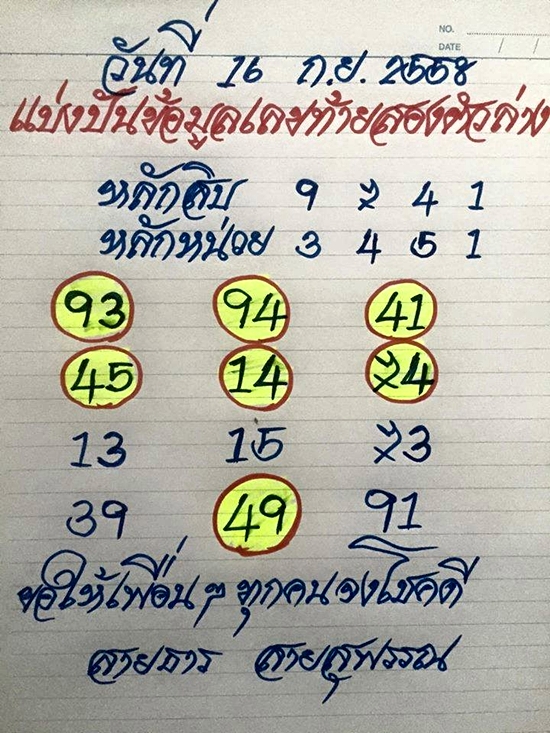 NO.
DATE / /
วันที่ 16 ก.ย. 2558
แบ่งปันข้อมูลเลขท้ายสองตัวล่าง
หลักสิบ 9 2 4 1
หลักหน่วย 3 4 5 1
93 94 41
45 14 24
13 15 23
39 49 91
ขอให้เพื่อน ๆ ทุกคนจงโชคดี
สายธาร สายสุพรรณ